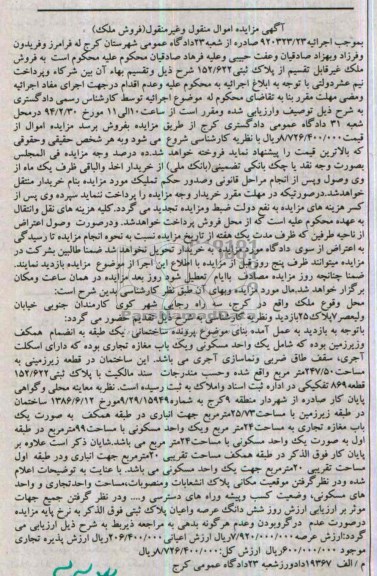 آگهی مزایده اموال منقول وغیرمنقول(فروش ملک)
بموجب اجرائیه۹۲۰۳۲۳/۲۳ صادره از شعبه۲۳دادگاه عمومی شهرستان کرج له فرامرز وفریدون
وفرزاد وبهزاد صادقیان وعفت حبیبی وعلیه فرهاد صادقیان محکوم علیه محکوم است به فروش
ملک غیرقابل تقسیم از پلاک ثبتی ۱۵۲/۶۲۲ شرح ذیل وتقسیم بهاء آن بین شرکاء وپرداخت
نیم عشردولتی با توجه به ابلاغ اجرائیه به محکوم علیه وعدم اقدام درجهت اجرای مفاد اجرائیه
ومضی مهلت مقرر بنا به تقاضای محکوم له موضوع اجرائیه توسط کارشناس رسمی دادگستری
به شرح ذیل توصیف وارزیابی شده ومقرر است از ساعت۱۰الی۱۱ مورخ ۹۴/۲/۳۰ درمحل
شعبه ۲۱ دادگاه عمومی دادگستری کرج از طریق مزایده بفروش برسد مزایده اموال از
قیمت۸/۷۲۶/۴۰۰/۰۰۰ریال با نظریه کارشناسی شروع می شود وبه هر شخص حقیقی وحقوقی
که بالاترین قیمت را پیشنهاد نماید فروخته خواهد شد.ده درصد وجه مزایده فی المجلس
بصورت وجه نقد یا چک بانکی تضمینی(بانک ملی) از خریدار اخذ والباقی ظرف یک ماه از
وی وصول وپس از انجام مراحل قانونی وصدور حکم تملیک مورد مزایده بنام خریدار منتقل
خواهدشد.درصورتیکه در مهلت مقرر خریدار وجه مزایده را پرداخت ننماید سپرده وی پس از
کسر هزینه های مزایده به نفع دولت ضبط ومزایده تجدید می گردد.کلیه هزینه های نقل وانتقال
به عهده محکوم علیه است که از محل فروش پرداخت خواهدشد. ودرصورت وصول اعتراض
از ناحیه طرفین که ظرف مدت یک هفته از تاریخ مزایده نسبت به نحوه انجام مزایده تا رسیدگی
به اعتراض از سوی دادگاه مورد مزایده به خریدار تحویل نخواهد شد.ضمنا طالبین بشرکت در
مزایده میتوانند ظرف پنج روز قبل از مزایده با اطلاع این اجرا از موضوع مزایده بازدید نمایند.
ضمنا چنانچه روز مزایده مصادف باایام تعطیل شود روز بعد مزایده در همان ساعت ومکان
برگزار خواهد شد.مال مورد مزایده وبهای آن طبق نظر کارشناسی بدین شرح است:
محل وقوع ملک واقع در کرج، سه راه رجایی شهر کوی کارمندان جنوبی خیابان
ولیعصر۷پلاک۲۵بازدید ونظریه کارشناسی به شرح ذیل تقدیم حضور می گردد:
باتوجه به بازدید به عمل آمده بنای موضوع پرونده ساختمانی یک طبقه به انضمام همکف
وزیرزمین بوده که شامل یک واحد مسکونی ویک باب مغازه تجاری بوده که دارای اسکلت
آجری، سقف طاق ضربی ونماسازی آجری می باشد. این ساختمان در قطعه زیرزمینی به
مساحت۲۴۷/۵۰متر مربع واقع شده وحسب مندرجات سند مالکیت با پلاک ثبتی ۱۵۲/۶۲۲
قطعه۸۶۹ تفکیکی در اداره ثبت اسناد واملاک به ثبت رسیده است. نظریه معاینه محلی وگواهی
پایان کار صادره از شهردار منطقه ۹کرج به شماره۹/۲۹/۱۵۹۴۹مورخ ۱۳۸۶/۶/۱۲ ساختمان
در طبقه زیرزمین با مساحت۲۵/۷۳مترمربع جهت انباری در طبقه همکف به صورت یک
باب مغازه تجاری به مساحت۲۴متر مربع ویک واحد مسکونی با مساحت۹۹مترمربع در طبقه
اول به صورت یک واحد مسکونی با مساحت۲۴متر مربع می باشد.شایان ذکر است علاوه بر
پایان کار فوق الذکر در طبقه همکف مساحت تقریبی ۲۰مترمربع جهت انباری ودر طبقه اول
مساحت تقریبی ۲۰مترمربع جهت یک واحد مسکونی می باشد. با عنایت به توضیحات اعلام
شده ودر نظرگرفتن موقعیت مکانی پلاک انشعابات ومنصوبات،مساحت واحدتجاری و واحد
های مسکونی، وضعیت کسب وپیشه وراه های دسترسی و.... ودر نظر گرفتن جمیع جهات
موثر بر ارزیابی ارزش روز شش دانگ عرصه واعیان پلاک ثبتی فوق الذکر به نرخ پایه مزایده
درصورت عدم درگروبودن وعدم هرگونه بدهی به مراجعه ذیربط به شرح ذیل ارزیابی می
گردد:ارزش عرصه۷/۹۲۰/۰۰۰/۰۰۰ریال ارزش اعیانی ۲۰۶/۴۰۰/۰۰۰ریال ارزش پذیره تجاری
موجود ۶۰۰/۰۰۰/۰۰۰ریال ارزش کل:۸/۷۲۶/۴۰۰/۰۰۰ریال
م / الف ۱۹۳۶۷دادورزشعبه ۲۳دادگاه عمومی کرج